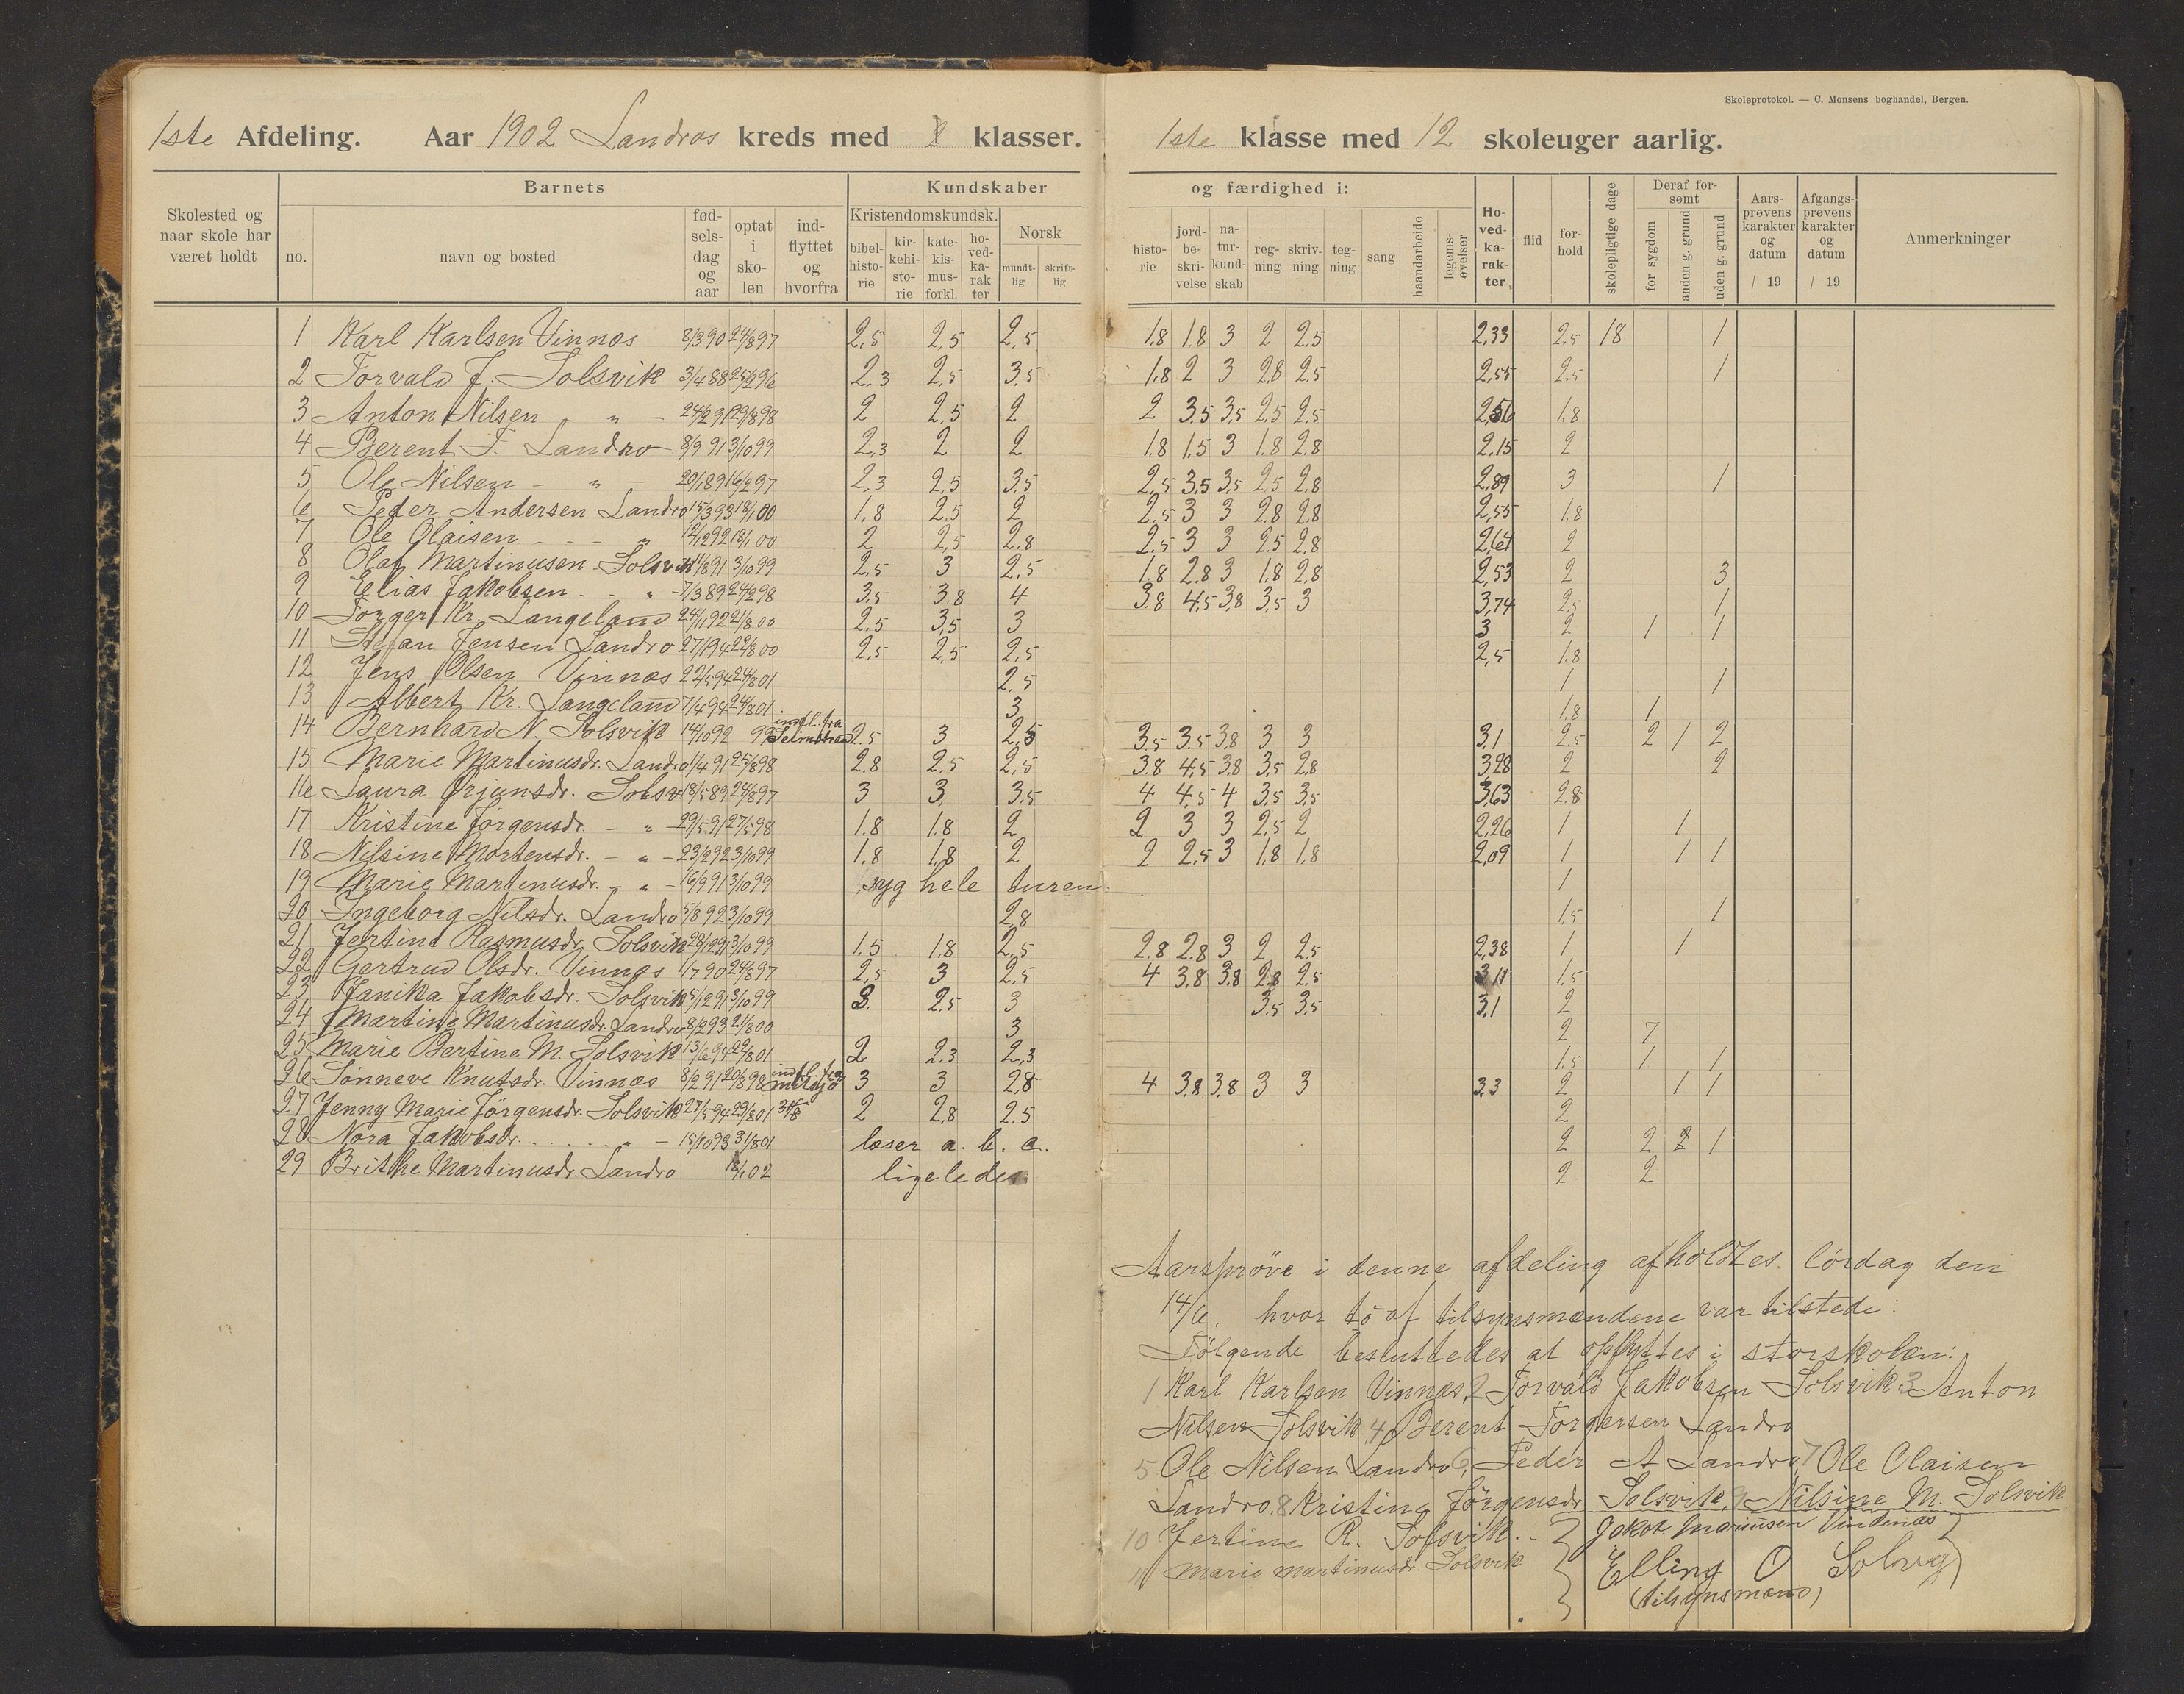 Skoleprotokol. — C. Monsens boghandel, Bergen.
1ste Afdeling. Aar 1902 Landros kreds med klasser. 1ste klasse med 12 skoleuger aarlig.
Skolested og naar skole har været holdt
Barnets
no. navn og bosted fødselsdag og aar optat i skolen indflyttet og hvorfra
Kundskaber og færdighed i:
Kristendomskundsk. bibelhistorie kirkehistorie katekismusforkl. hovedkarakter
Norsk mundtlig skriftlig
historie jordbeskrivelse naturkundskab regning skrivning tegning sang haandarbeide legemsøvelser
Hovedkarakter flid forhold skolepligtige dage
Deraf forsømt for sygdom anden g. grund uden g. grund
Aarsprøvens karakter og datum / 19
Afgangsprøvens karakter og datum / 19
Anmerkninger
1 Karl Karlsen Vinnæs 8/3 90 24/8 97 2,5 2,5 2,5 1,8 1,8 3 2 2,5 2,33 2,5 18 1
2 Torvald J. Solsvik 3/4 88 25/2 96 2,3 2,5 3,5 1,8 2 3 2,8 2,5 2,55 2,5 1
3 Anton Nilsen " - 24/2 91 29/8 98 2 2,5 2 2 3,5 3,5 2,5 2,5 2,56 1,8
4 Berent T. Landro 8/9 91 3/10 99 2,3 2 2 1,8 1,5 3 1,8 2,8 2,15 2
5 Ole Nilsen - " - 20/1 89 16/2 97 2,3 2,5 3,5 2,5 3,5 3,5 2,5 2,8 2,89 3 1
6 Peder Andersen Landro 15/3 93 18/1 00 1,8 2,5 2 2,5 3 3 2,8 2,8 2,55 1,8
7 Ole Olaisen - - - " 12/12 92 18/1 00 2 2,5 2,8 2,5 3 3 2,5 2,8 2,64 2
8 Olaf Martinusen Solsvik 11/8 91 3/10 99 2,5 3 2,5 1,8 2,8 3 1,8 2,8 2,53 2 3
9 Elias Jakobsen - - " - 7/3 89 24/2 98 3,5 3,8 4 3,8 4,5 3,8 3,5 3 3,74 2,5 1
10 Torger Kr. Langeland 24/11 92 21/8 00 2,5 3,5 3 3 2 1 1
11 Stefan Jensen Landro 27/1 94 22/8 00 2,5 2,5 2,5 2,5 1,8
12 Jens Olsen Vinnæs 22/5 94 24/8 01 2,5 1 1
13 Albert Kr. Langeland 7/4 94 24/8 01 3 1,8 1
14 Bernhard N. Solsvik 14/10 92 99 indfl. fra 2,5 3 2,5 3,5 3,5 3,8 3 3 3,1 2,5 2 1 2
15 Marie Martinusdr. Landro 1/4 91 25/8 98 2,8 2,5 2,5 3,8 4,5 3,8 3,5 2,8 3,28 2 2
16 Laura Ørjansdr. Solsv 18/5 89 24/8 97 3 3 3,5 4 4,5 4 3,5 3,5 3,63 2,8
17 Kristine Jørgensdr. - " 29/5 91 27/5 98 1,8 1,8 2 2 3 3 2,5 2 2,26 1 1
18 Nilsine Mortensdr. - " - 23/2 92 3/10 99 1,8 1,8 2 2 2,5 3 1,8 1,8 2,09 1 1 1
19 Marie Martinusdr. - " - 16/9 91 3/10 99 syg hele turen 1
20 Ingeborg Nilsdr. Landro 5/8 92 3/10 99 2,8 1,5 1
21 Jertine Rasmusdr. Solsvik 28/12 91 3/10 99 1,5 1,8 2,5 2,8 2,8 3 2 2,5 2,38 1 1
22 Gertrud Olsdr. Vinnæs 1/7 90 24/8 97 2,5 3 2,5 4 3,8 3,8 2,8 2,5 3,11 1,5
23 Janika Jakobsdr. Solsvik 5/12 91 3/10 99 3 2,5 3 3,5 3,5 3,1 2
24 Martine Martinusdr. Landro 8/2 93 21/8 00 3 2 7
25 Marie Bertine M. Solsvik 13/6 94 22/8 01 2 2,3 2,3 1,5 1 1
26 Sønneve Knutsdr. Vinnæs 8/2 91 20/8 98 indfl. fra 3 3 2,8 4 3,8 3,8 3 3 3,3 2 1 1
27 Jenny Marie Jørgensdr. Solsvik 27/5 94 29/8 01 2 2,8 2,5 2
28 Nora Jakobsdr. . . . . . . " - 15/10 93 31/8 01 læser a. b. c. 2 2 2 1
29 Brithe Martinusdr. Landro 18/1 02 ligeledes 2 2
Aarsprøve i denne afdeling afholdtes lørdag den
14/6, hvor to af tilsynsmændene var tilstede:
Følgende besluttedes at opflyttes i storskolen:
1 Karl Karlsen Vinnæs, 2 Torvald Jakobsen Solsvik 3 Anton
Nilsen Solsvik 4, Berent Torgersen Landro
5 Ole Nilsen Landro 6, Peder A Landro, 7 Ole Olaisen
Landro 8 Kristine Jørgensdr Solsvik, 9 Nilsine M. Solsvik
10 Jertine R. Solsvik. - } Jakob Mariusen Vindenæs }
11 Marie Martinusdr. Solsvik } Elling O Solvg
(tilsynsmænd)